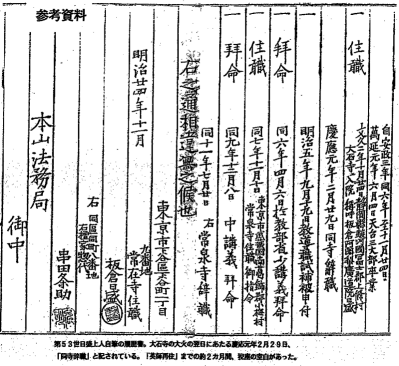 参考資料
自安政三年同六年至十一月廿四日
萬延元年六月四日天台三大部卒業
一 住職
慶應元年二月廿九日同寺辭職
明治五年九月九日教導職試補被申付
一 拜命 同六年四月六日於教部省少講義拜命
一 住職 同七年十二月十日
常泉寺住職御指令
一 拜命 同九年十二月八日 中講義 拜命
同十一年七月廿日 右 常泉寺辞職
右之通相違無之候也
明治廿四年十二月
九番地
常在寺住職
板倉日盛
右 同區同町八番地
串田条助
本山法務局
御中
第５３世日盛上人自筆の履歴書。大石寺の大火の翌日にあたる慶応元年２月２９日、
「同寺辞職」と記されている。「英師再住」までの約２カ月間、猊座の空白があった。